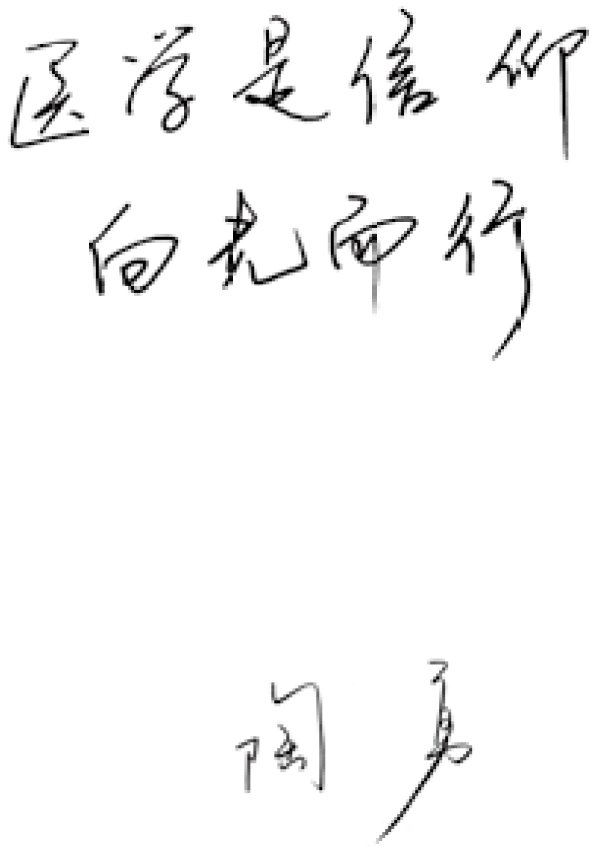 医学是信仰
向光而行
陶勇